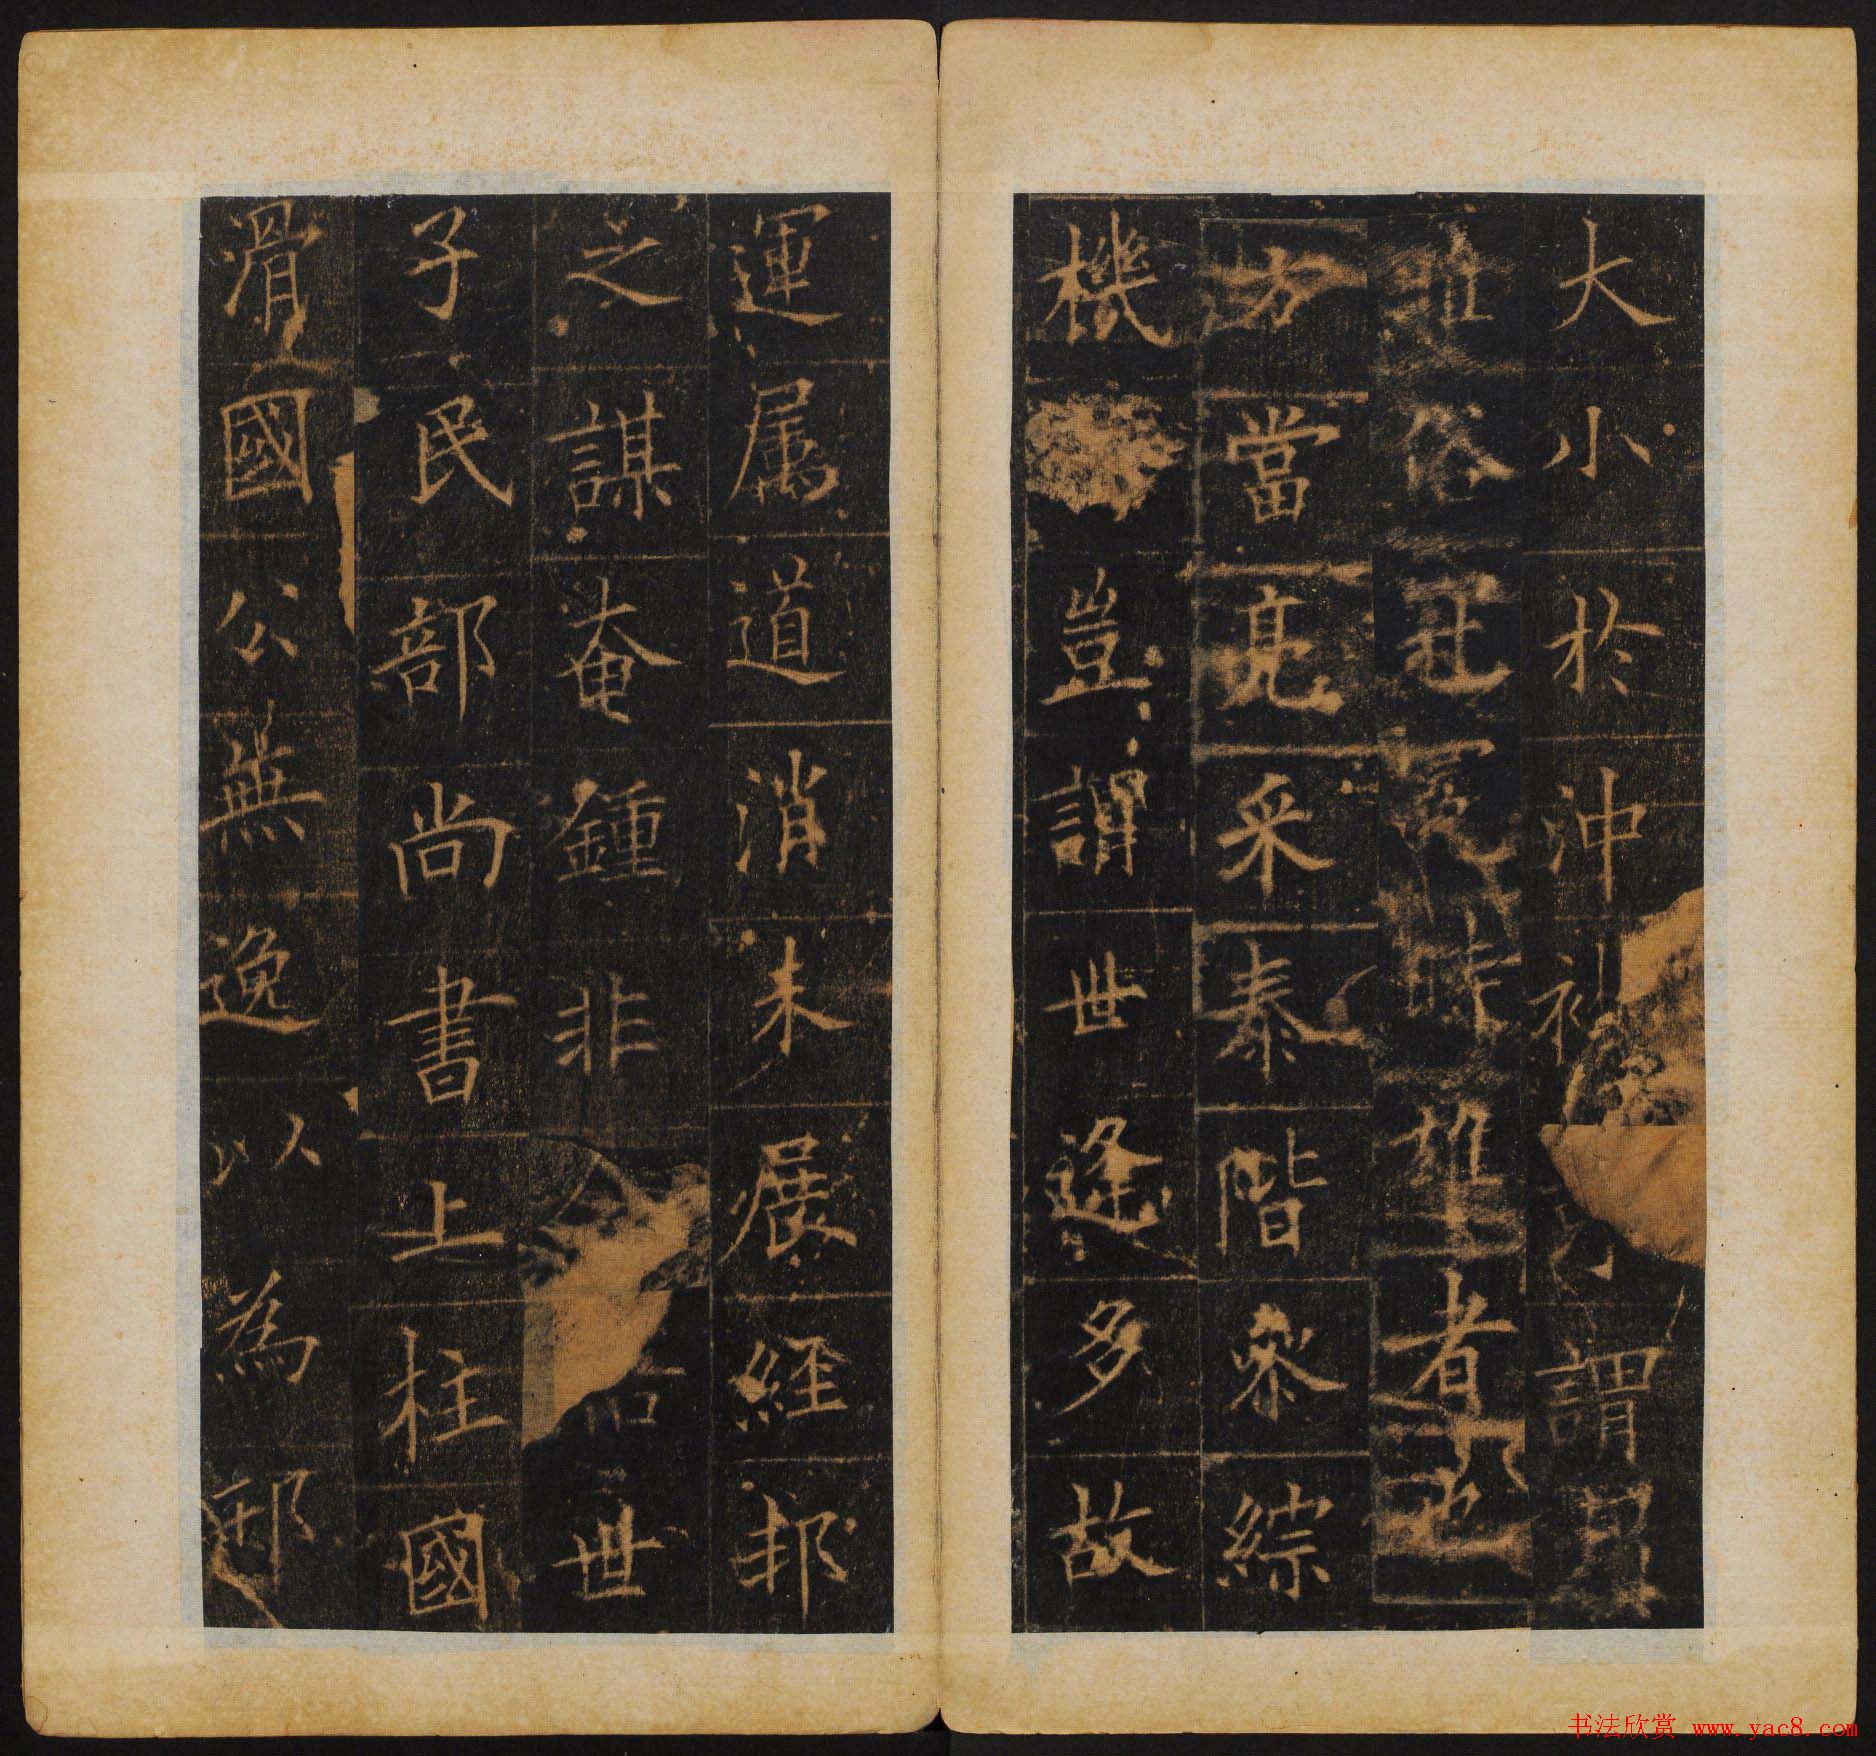 大小於沖謂
俗時雄者也
方當亮采泰階參綜
機豈謂世逢多故
運屬道消未展經邦
之謀奄鍾非世
子民部尚書上柱國
滑國公無逸以為邢
书法欣赏 www.yac8.com